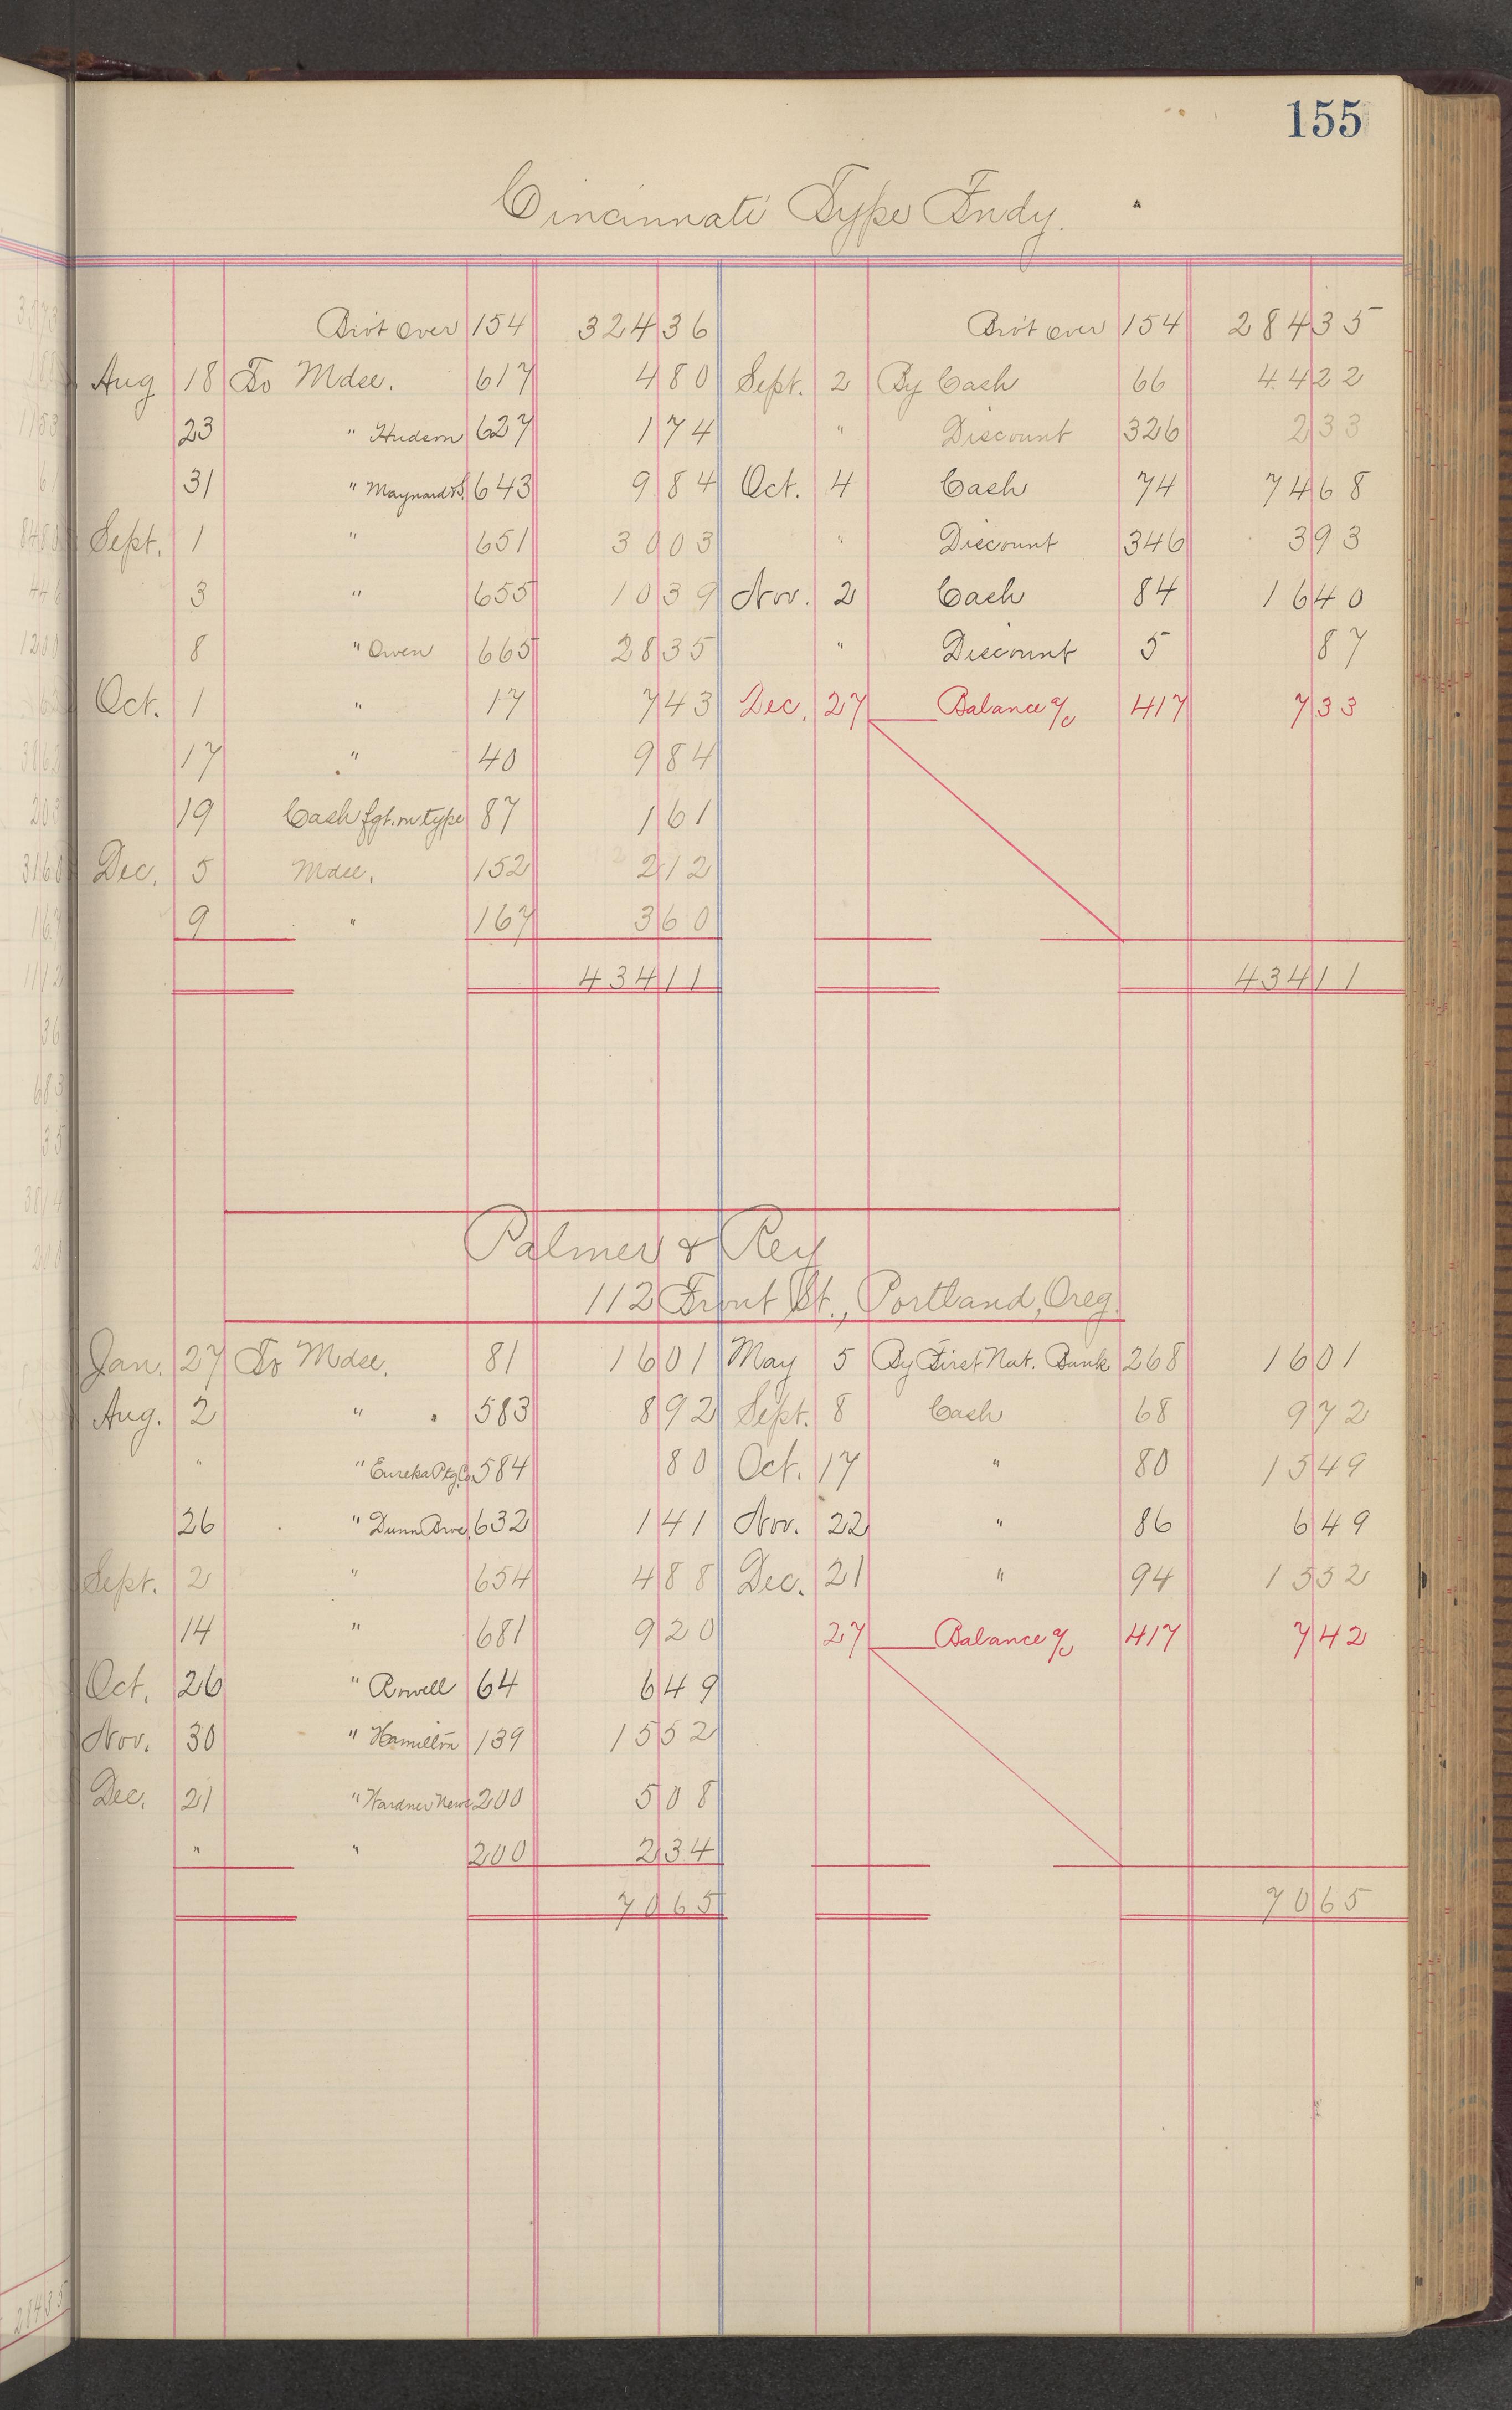 155
Cincinnati Type Fndy.
Bro't over 154 324 36 Bro't over 154 284 35
Aug 18 To Mdse. 617 4 80 Sept. 2 By Cash 66 44 22
23 " Hudson 627 1 74 " Discount 326 2 33
31 " Maynard & S. 643 9 84 Oct. 4 Cash 74 74 68
Sept. 1 " 651 30 03 " Discount 346 3 93
3 " 655 10 39 Nov. 2 Cash 84 16 40
8 " Owen 665 28 35 " Discount 5 87
Oct. 1 " 17 7 43 Dec. 27 Balance % 417 7 33
17 " 40 9 84
19 Cash fgt. on type 87 1 61
Dec. 5 Mdse. 152 2 12
9 " 167 3 60
434 11 434 11
Palmer & Rey
112 Front St., Portland, Oreg.
Jan. 27 To Mdse. 81 16 01 May 5 By First Nat. Bank 268 16 01
Aug. 2 " 583 8 92 Sept. 8 Cash 68 9 72
" " Eureka Ptg. Co. 584 80 Oct. 17 " 80 15 49
26 " Dunn Bros. 632 1 41 Nov. 22 " 86 6 49
Sept. 2 " 654 4 88 Dec. 21 " 94 15 52
14 " 681 9 20 27 Balance % 417 7 42
Oct. 26 " Rowell 64 6 49
Nov. 30 " Hamilton 139 15 52
Dec. 21 " Wardner News 200 5 08
" " 200 2 34
70 65 70 65
284 35